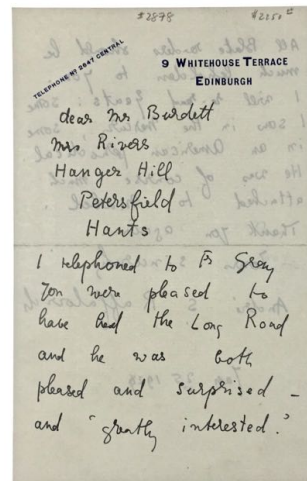 #2878
TELEPHONE Nº 2847 CENTRAL
9 WHITEHOUSE TERRACE
EDINBURGH
dear Mr Burdett
Mrs Rivers
Hanger Hill
Petersfield
Hants
I telephoned to Fr Gray
you were pleased to
have had the Long Road
and he was both
pleased and surprised –
and "greatly interested."